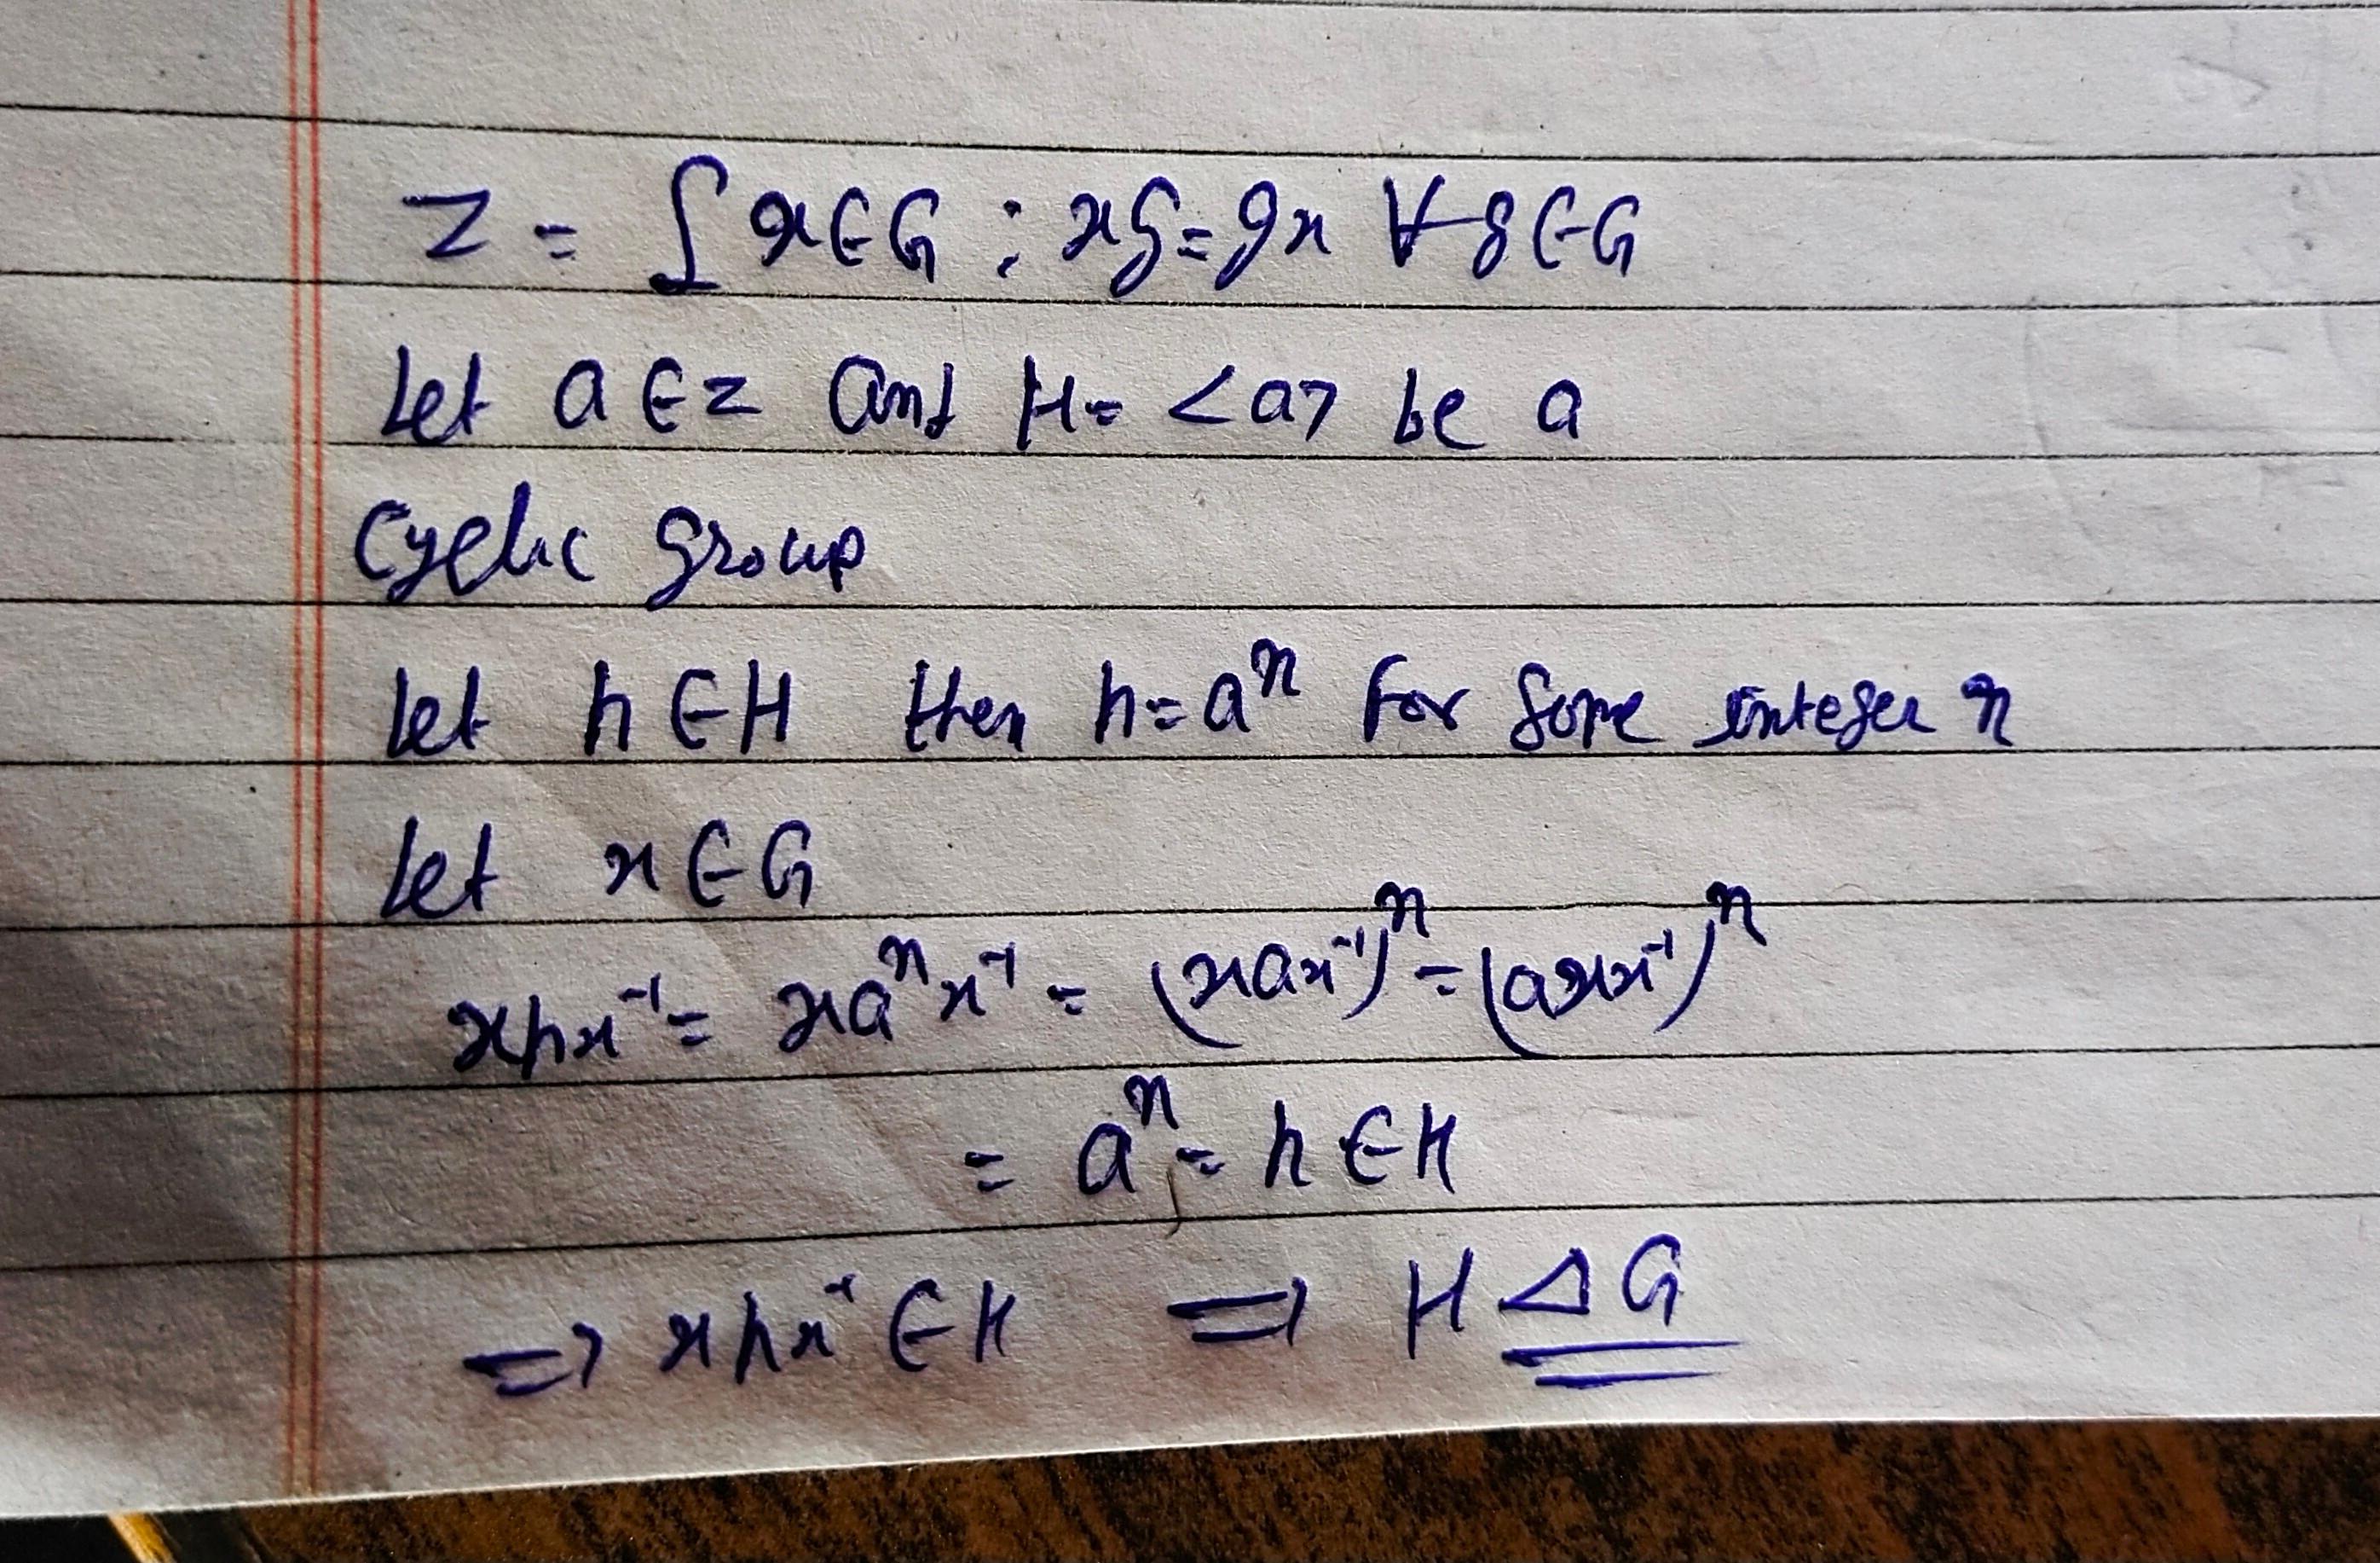 Z = { x∈G : xg = gx ∀ g∈G
Let a ∈ Z and H = <a> be a
Cyclic group
Let h ∈ H then h = aⁿ for some integer n
Let x ∈ G
xhx⁻¹ = xaⁿx⁻¹ = (xax⁻¹)ⁿ = (axx⁻¹)ⁿ
= aⁿ = h ∈ H
⇒ xhx⁻¹ ∈ H ⇒ H Δ G